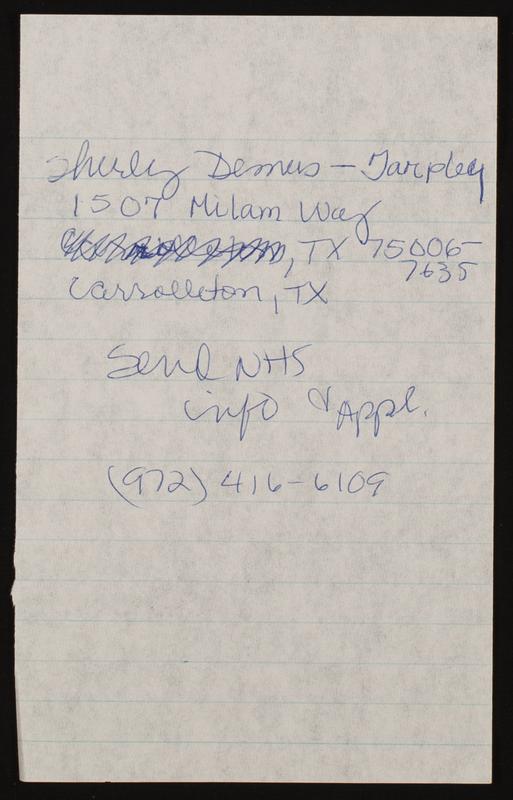 Shirley Demus - Tarpley
1507 Milam Way
, TX 75006-
7635
Carrolleton, TX
Send NHS
info & Appl.
(972) 416-6109